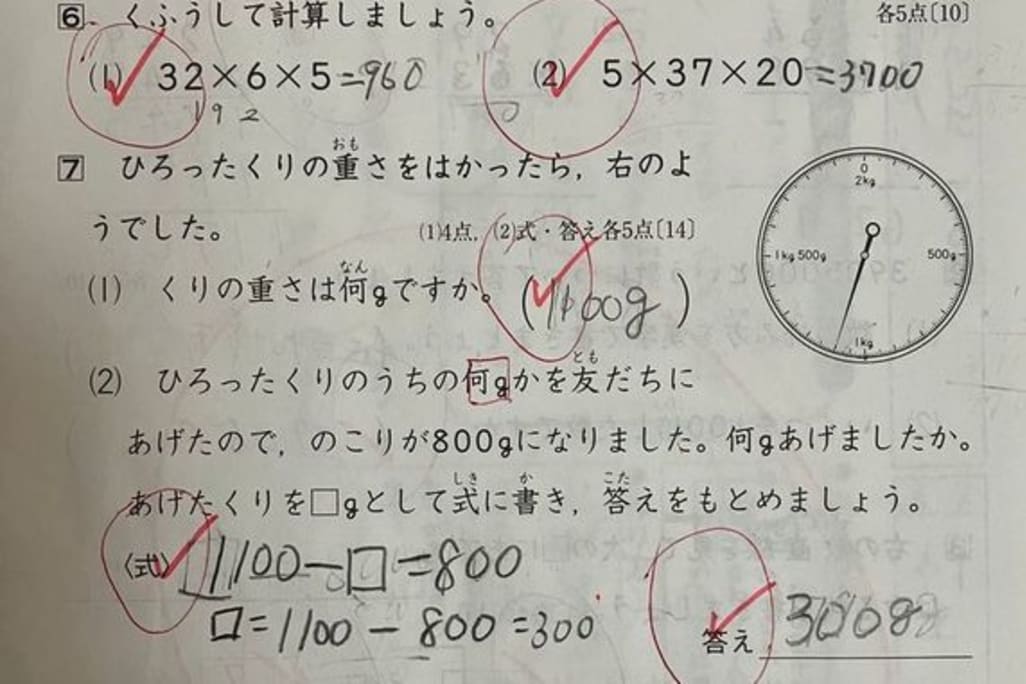 6 くふうして計算しましょう。 各5点〔10〕
(1) 32×6×5=960 (2) 5×37×20=3700
192
7 ひろったくりの重さをはかったら，右のよ
うでした。 (1)4点，(2)式・答え各5点〔14〕
(1) くりの重さは何gですか。 (1100g)
0
2kg
1kg500g 500g
1kg
(2) ひろったくりのうちの何gかを友だちに
あげたので，のこりが800gになりました。何gあげましたか。
あげたくりを□gとして式に書き，答えをもとめましょう。
〈式〉 1100－□＝800
□＝1100－800＝300
答え 300g